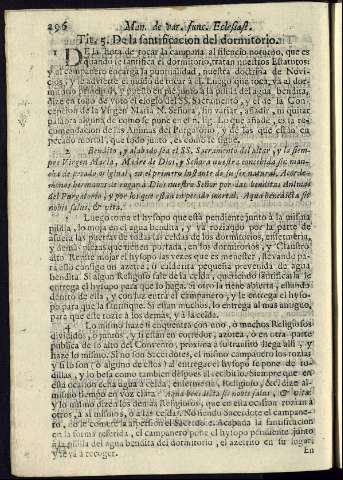 296 Man. de var. func. Eclesiast.
Tit. 5. De la santificacion del dormitorio.
DE la hora de tocar la campana al silencio noturno, que es
quando se santifica el dormitorio, tratan nuestros Estatutos:
y al campanero encarga la puntualidad, nuestra doctrina de Novi-
cios, y le advierte el modo de tocar à el. Luego que toca, và al dor-
mitorio principal, y puesto en pie junto à la pila del agua bendita,
dize en todo de voto el elogio del SS. Sacramento, y el de la Con-
cepcion de la Virgen Maria N. Señora, sin variar, añadir, ni quitar
palabra alguna de como se pone en el n. Lo que añade, es la re-
comendacion de las Animas del Purgatorio, y de las que estàn en
pecado mortal, que todo junto es como se sigue.
2. Bendito, y alabado sea el SS. Sacramento del altar, y la siem-
pre Virgen Maria, Madre de Dios, y Señora nuestra concebida sin man-
cha de pecado original, en el primero instante de su ser natural. Acorde-
monos hermanos de rogar à Dios nuestro Señor por las benditas Animas
del Purgatorio, y por los que estàn en pecado mortal. Aqua benedicta sit
nobis salus, & vita.
3. Luego toma el hysopo que està pendiente junto à la misma
pila, lo moja en el agua bendita, y và roziando por la parte de
afuera las puertas de todas las celdas de los dormitorios, enfermeria,
y demàs piezas que tienen portada, en los dormitorios, y Claustro
alto. Repite mojar el hysopo las vezes que es menester, llevando pa-
ra esso consigo un azetre, ò calderita pequeña prevenida de agua
bendita. Si algun Religioso sale de la celda, queriendo santificarla le
entrega el hysopo para que lo haga. Si otro la tiene abierta, estando
dentro de ella, y combida entrar el campanero, y le entrega el hyso-
po para que la santifique. Si estàn muchos, lo entrega al mas antiguo,
para que este rozie à los demàs, y à la celda.
4. Lo mismo haze si encuentra con uno, ò muchos Religiosos
divididos, ò juntos, y si estàn en corredor, azotea, ò en otra parte
publica de lo alto del Convento, prosigue su transito llega alli, y
haze lo mismo. Si no son Sacerdotes, el mismo campanero los rozìa:
y si lo son (ò alguno de ellos) al entregar el hysopo se pone de ro-
dillas, y lo besa como tambien despues al recibirlo. Siempre que en
esta ocasion echa agua à celda, enfermeria, Religioso, &c. dize al
mismo tiempo en voz clara: Aqua benedicta sit nobis salus, & vita:
y lo mismo dize à los demàs Religiosos, que en esta ocasion rozìan à
otros, à si mismos, ò à las celdas. No siendo Sacerdote el campane-
ro, no le comete la aspersion al Sacerdote. Acabada la santificacion
en la forma referida, el campanero pone el hysopo pendiente junto
à la pila del agua bendita del dormitorio, el azetrito en su lugar,
y se và à recoger.
En